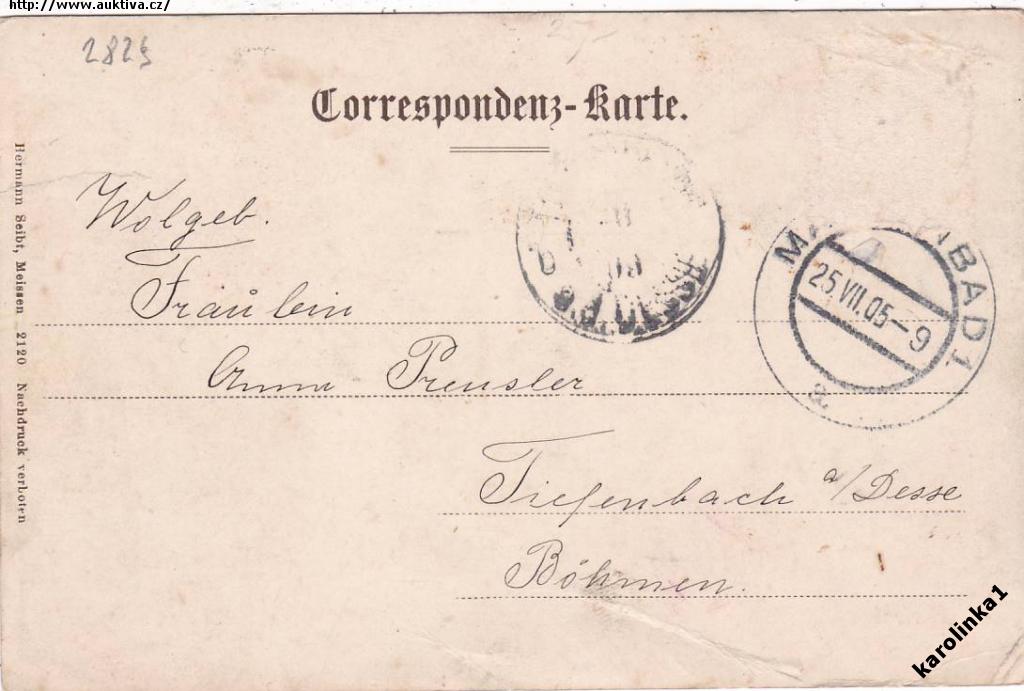 http://www.auktiva.cz/
Correspondenz-Karte.
Wolgeb.
Fräulein
Anna Preusler
Tiefenbach a/Desse
Böhmen.
25 VII. 05 - 9
BAD 1
a
Hermann Seibt, Meissen 2120 Nachdruck verboten
karolinka1